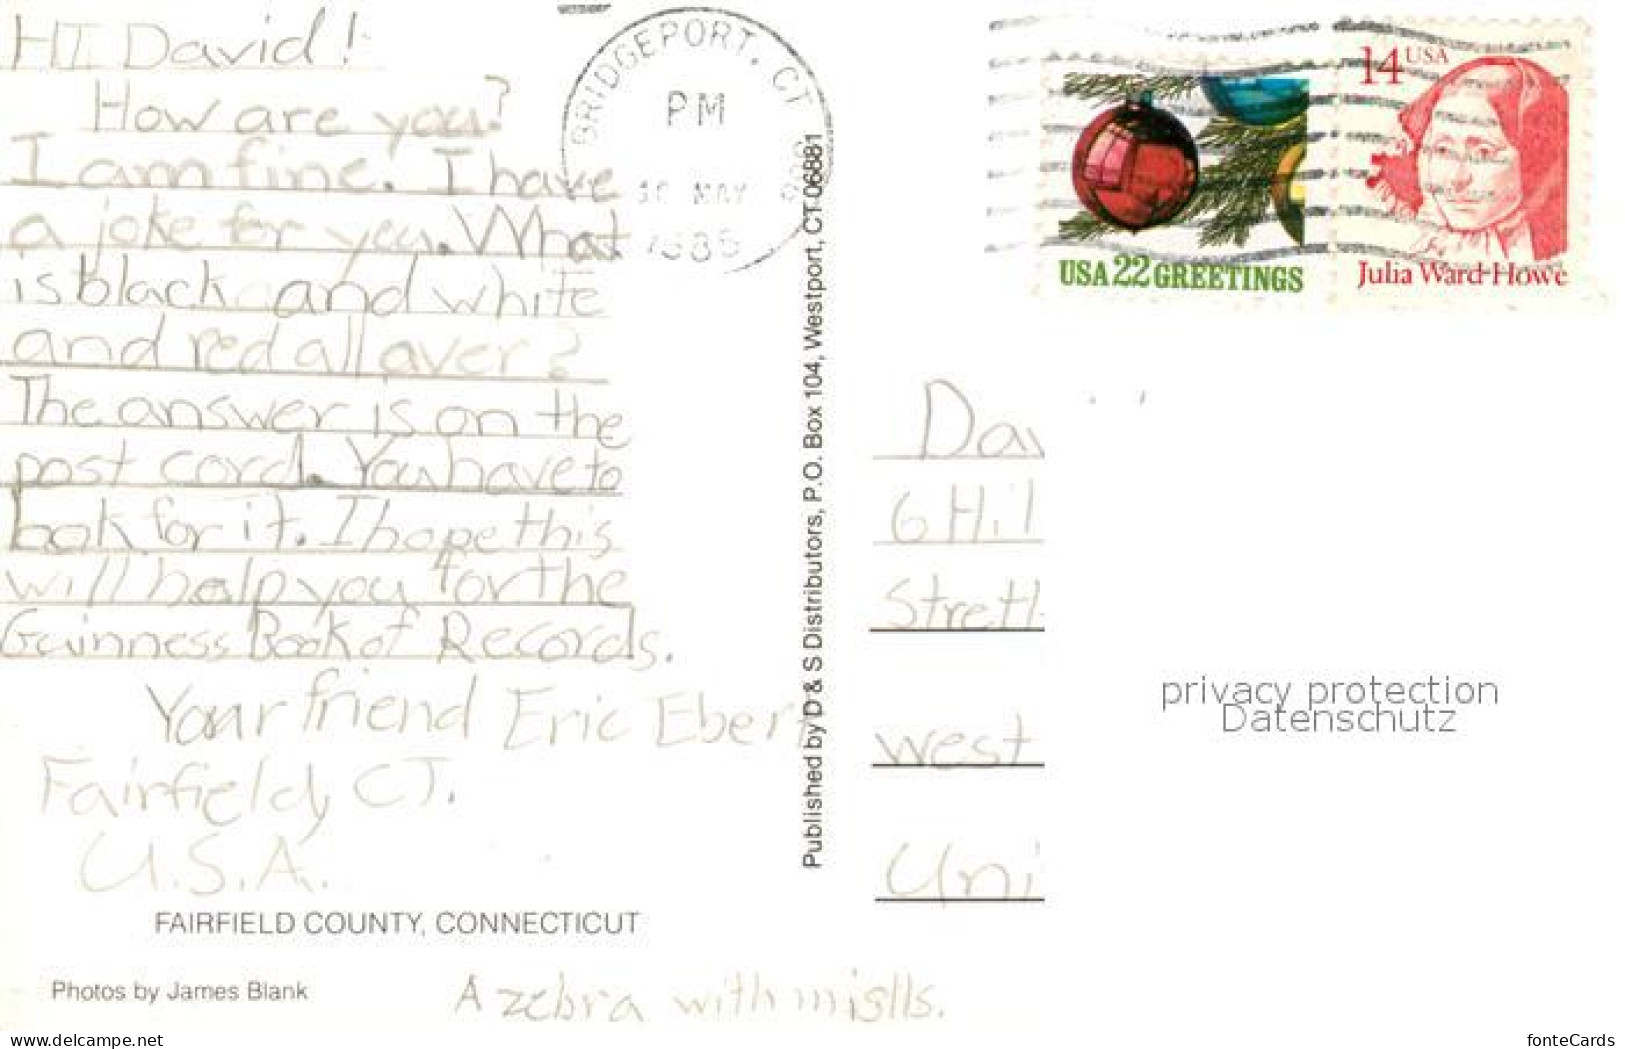 HI David!
How are you?
I am fine. I have
a joke for you. What
is black and white
and red all over?
The answer is on the
post card. You have to
look for it. I hope this
will help you for the
Guinness Book of Records.
Your friend Eric Ebert
Fairfield, CT.
U.S.A.
FAIRFIELD COUNTY, CONNECTICUT
Photos by James Blank
A zebra with
Published by D & S Distributors, P.O. Box 104, Westport, CT 06881
BRIDGEPORT, CT
PM
MAY
USA 22 GREETINGS
14 USA
Julia Ward Howe
Dav
6 Hil
west
Uni
privacy protection
Datenschutz
www.delcampe.net
fonteCards